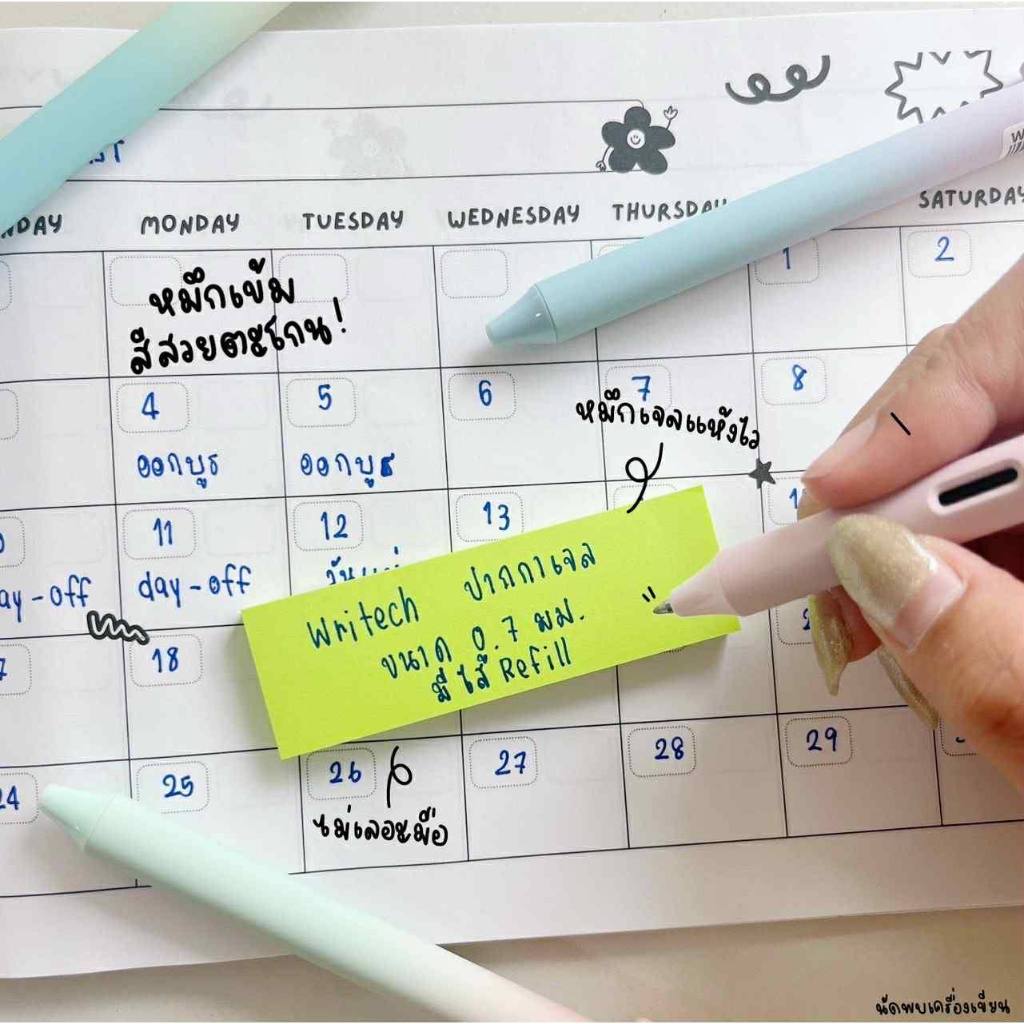 MONDAY TUESDAY WEDNESDAY SATURDAY
1 2
หมึกเข้ม
สีสวยตะโกน!
4 5 6 7 8
หมึกเจลแห้งไว
ออกบูธ ออกบูธ
11 12 13
day-off
Writech ปากกาเจล
ขนาด 0.7 มม.
มีไส้ Refill
18
24 25 26 27 28 29
ไม่เลอะมือ
นัดพบเครื่องเขียน